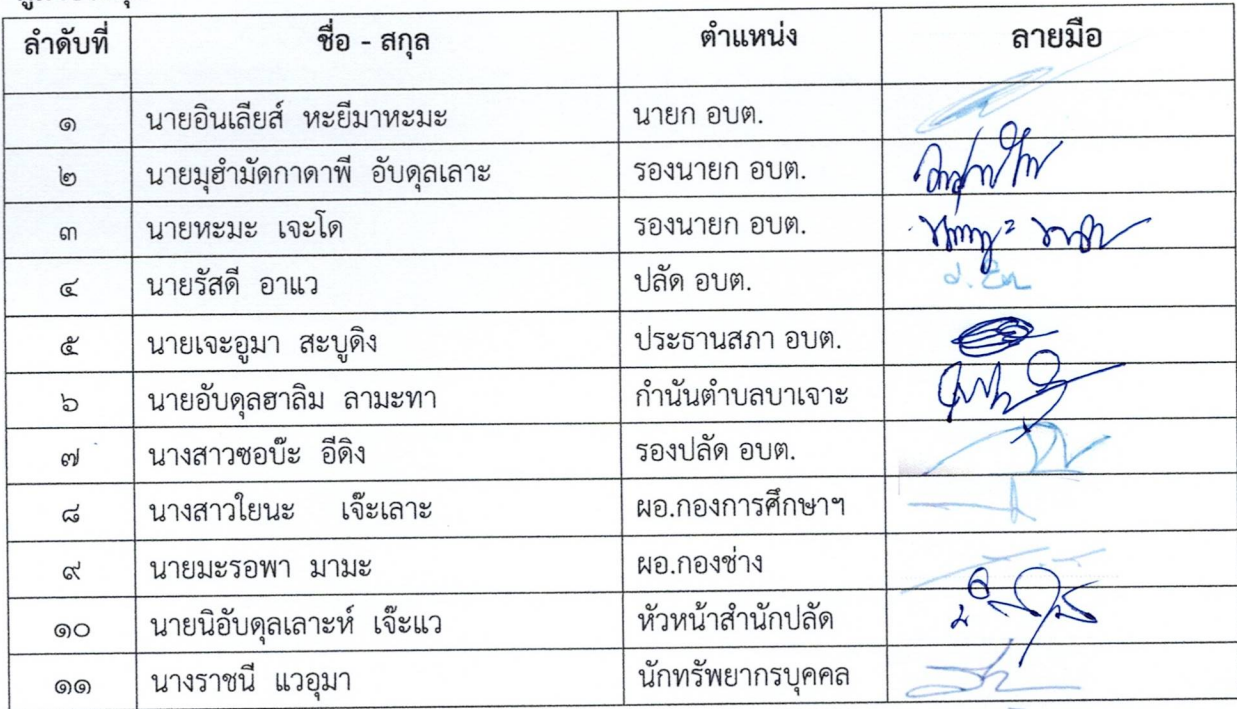 ลำดับที่ ชื่อ - สกุล ตำแหน่ง ลายมือ
๑ นายอินเลียส์ หะยีมาหะมะ นายก อบต.
๒ นายมุฮำมัดกาดาพี อับดุลเลาะ รองนายก อบต.
๓ นายหะมะ เจะโด รองนายก อบต.
๔ นายรัสดี อาแว ปลัด อบต.
๕ นายเจะอูมา สะบูดิง ประธานสภา อบต.
๖ นายอับดุลฮาลิม ลามะทา กำนันตำบลบาเจาะ
๗ นางสาวซอบ๊ะ อีดิง รองปลัด อบต.
๘ นางสาวใยนะ เจ๊ะเลาะ ผอ.กองการศึกษาฯ
๙ นายมะรอพา มามะ ผอ.กองช่าง
๑๐ นายนิอับดุลเลาะห์ เจ๊ะแว หัวหน้าสำนักปลัด
๑๑ นางราชนี แวอุมา นักทรัพยากรบุคคล